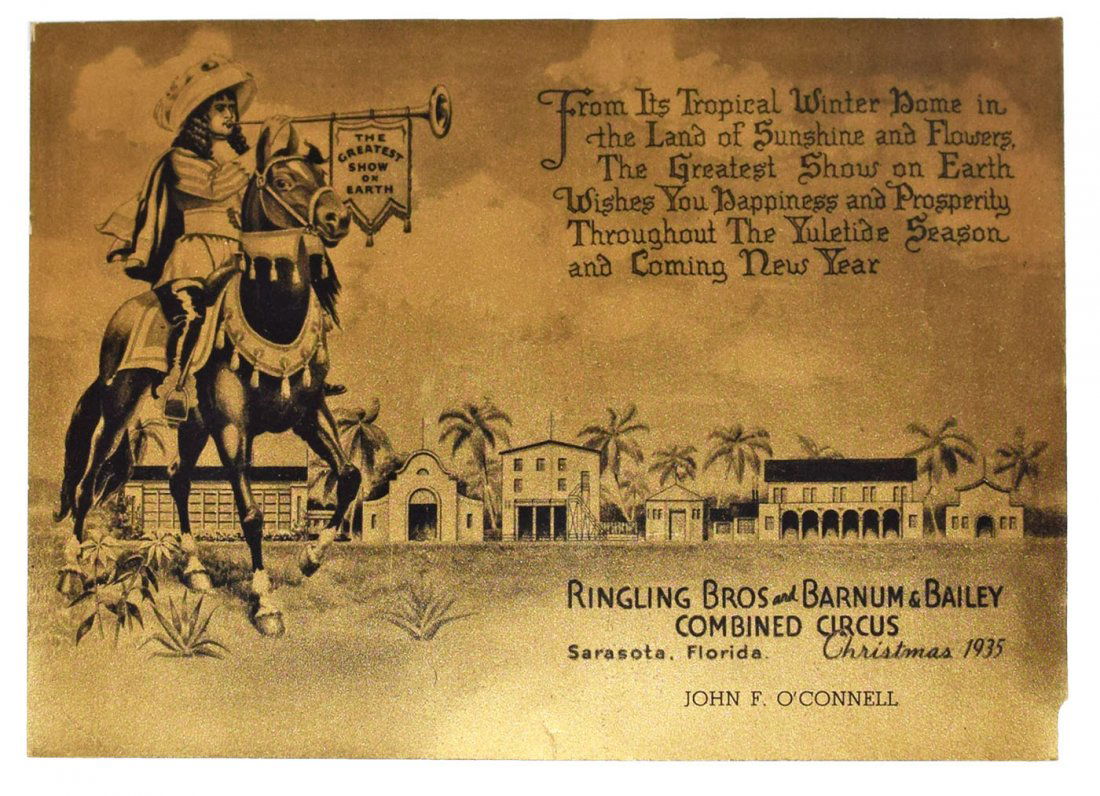 THE
GREATEST
SHOW
ON
EARTH
From Its Tropical Winter Home in
the Land of Sunshine and Flowers,
The Greatest Show on Earth
Wishes You Happiness and Prosperity
Throughout The Yuletide Season
and Coming New Year
RINGLING BROS and BARNUM & BAILEY
COMBINED CIRCUS
Sarasota, Florida. Christmas 1935
JOHN F. O'CONNELL